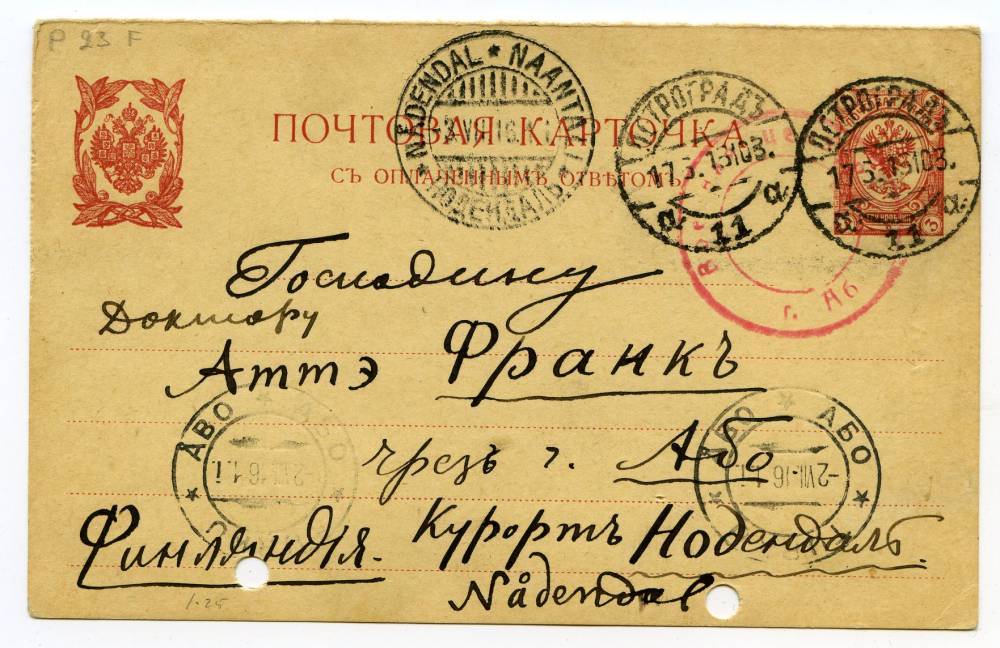 P 23 F
NÅDENDAL * NAANTALI
НОДЕНДАЛЬ
-3.VII.16.
ПЕТРОГРАДЪ
11
ПЕТРОГРАДЪ
11
ПОЧТОВАЯ КАРТОЧКА
СЪ ОПЛАЧЕННЫМЪ ОТВѢТОМЪ
г. Або
Господину
Доктору
Аттэ Франкъ
чрезъ г. Або
ÅBO * АБО
-2.VII.-16.1.
ÅBO * АБО
-2.VII.-16.1.
Финляндія. Курортъ Нодендалъ.
Nådendal
1.25